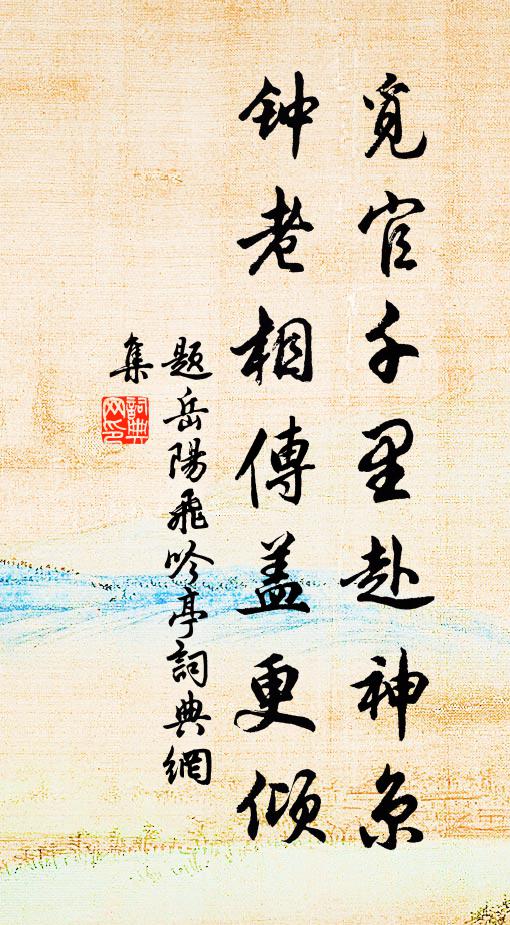 觅官千里赴神京
钟老相傳盖更倾
题岳陽飛吟亭詞典網
集
詞典
网印